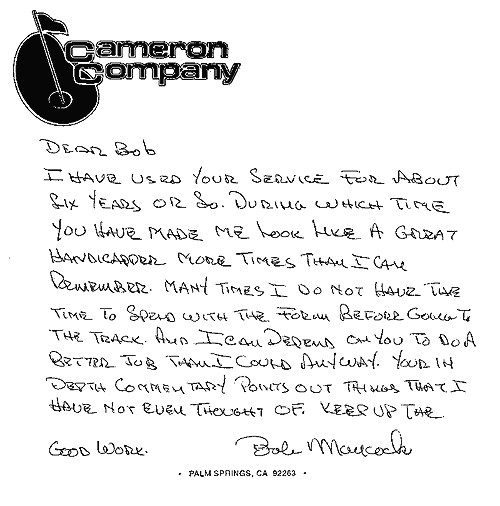 Cameron
Company
DEAR BOB
I HAVE USED YOUR SERVICE FOR ABOUT
SIX YEARS OR SO. DURING WHICH TIME
YOU HAVE MADE ME LOOK LIKE A GREAT
HANDICAPPER MORE TIMES THAN I CAN
REMEMBER. MANY TIMES I DO NOT HAVE THE
TIME TO SPEND WITH THE FORM BEFORE GOING TO
THE TRACK. AND I CAN DEPEND ON YOU TO DO A
BETTER JOB THAN I COULD ANYWAY. YOUR IN
DEPTH COMMENTARY POINTS OUT THINGS THAT I
HAVE NOT EVEN THOUGHT OF. KEEP UP THE
GOOD WORK. Bob Maycock
• PALM SPRINGS, CA 92263 •